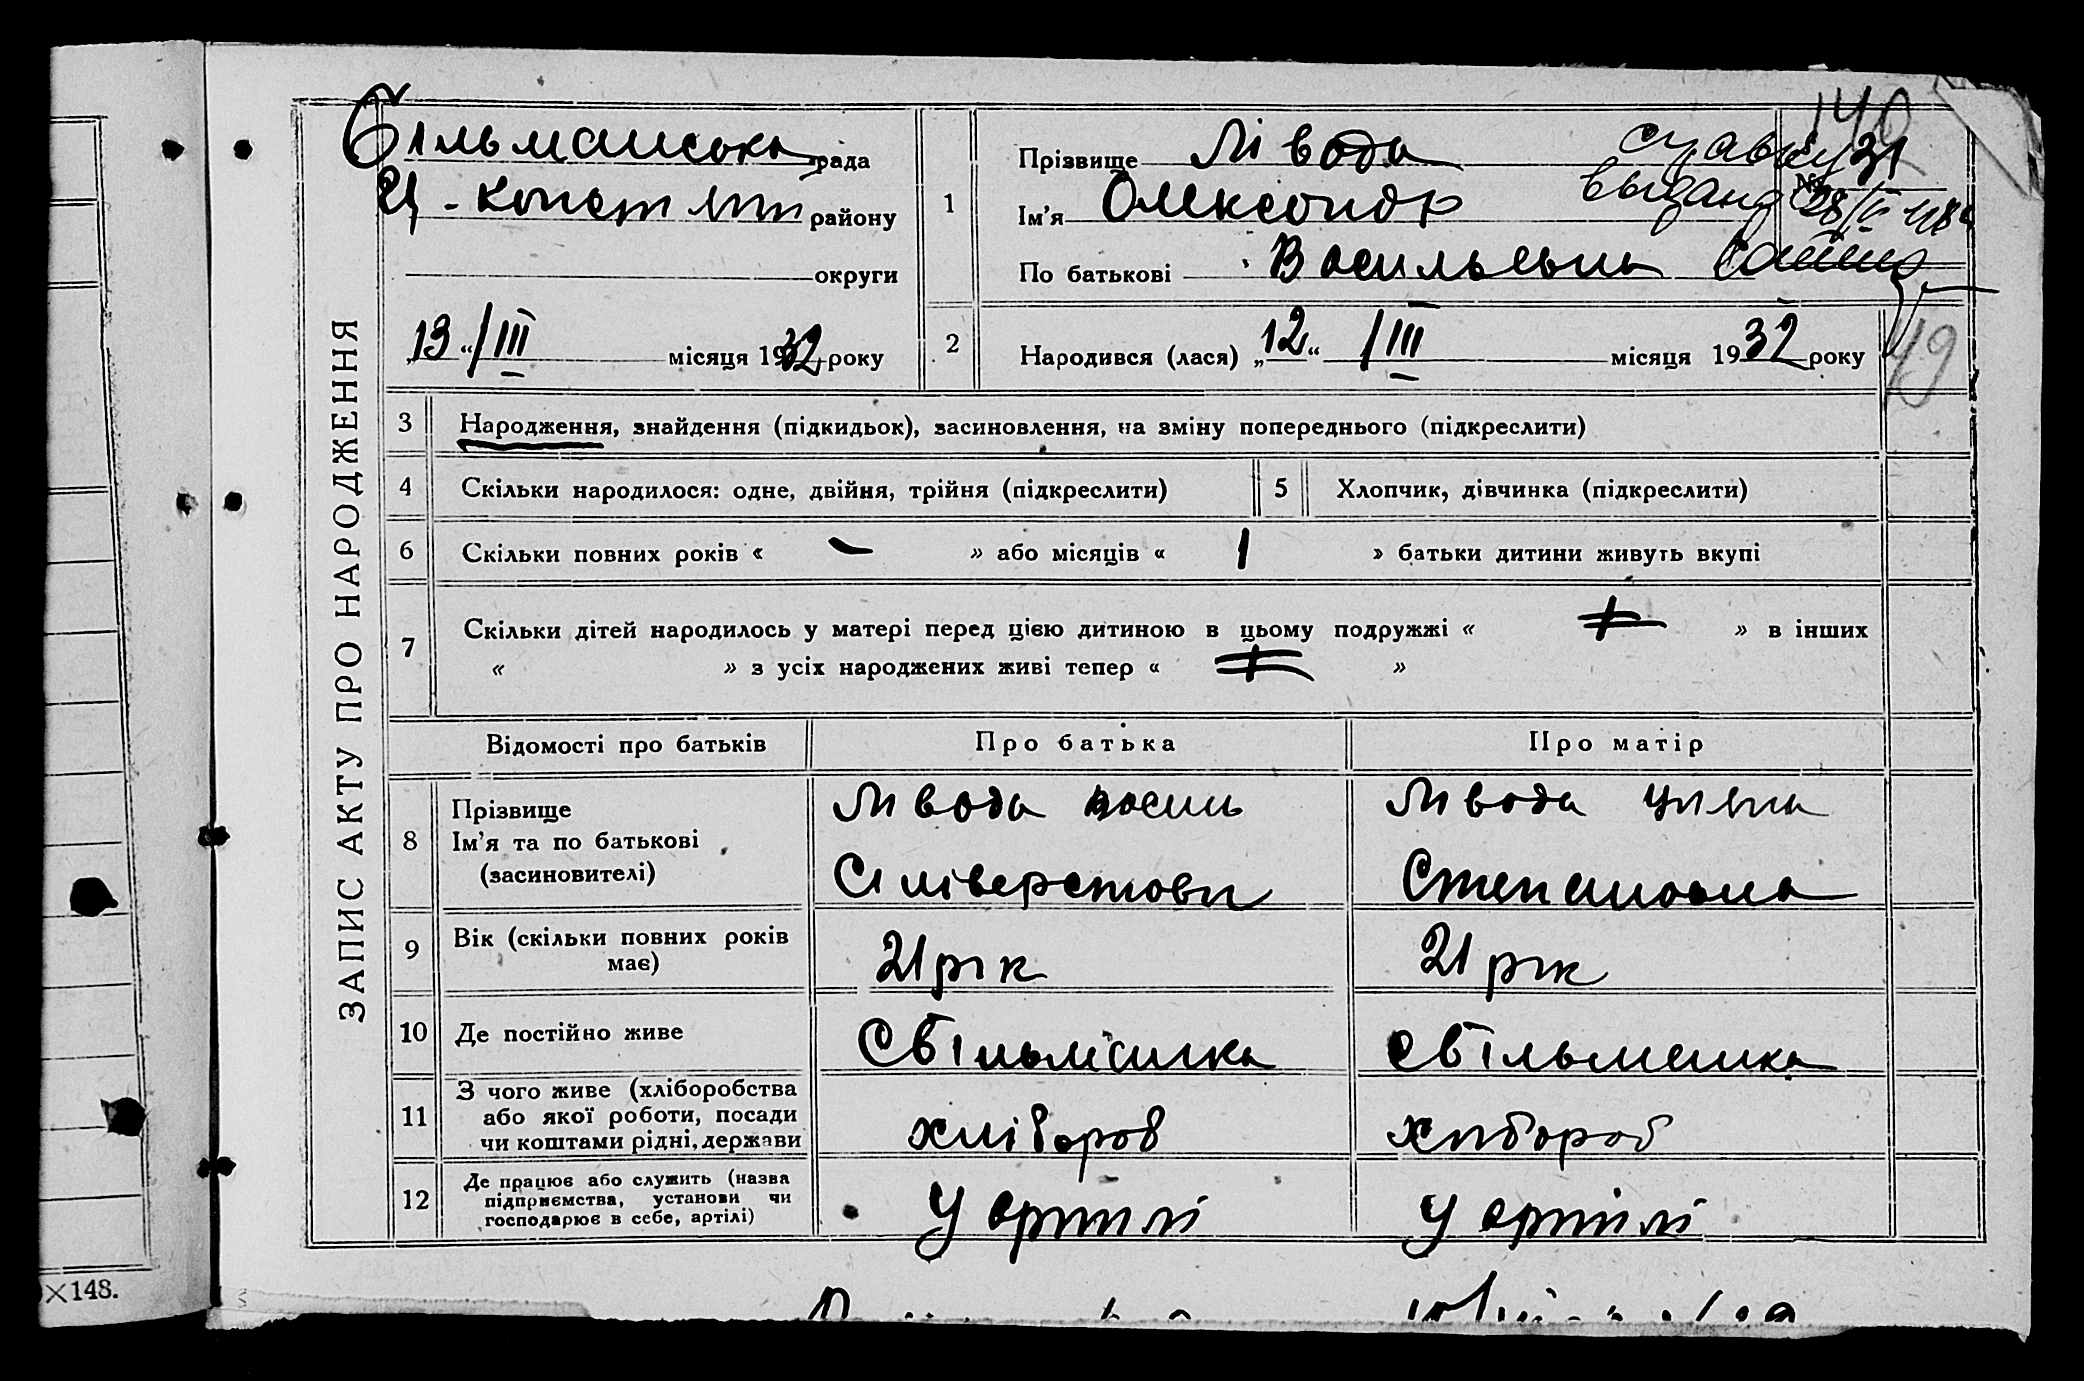 Більманська рада
Ц-Констянт району
округи
„13“/III місяця 1932 року
ЗАПИС АКТУ ПРО НАРОДЖЕННЯ
140
№ 31
справку
выдана 28/
1 Прізвище Лівода
Ім'я Олександр
По батькові Васильевич
2 Народився (лася) „12“ /III місяця 1932 року
49
3 Народження, знайдення (підкидьок), засиновлення, на зміну попереднього (підкреслити)
4 Скільки народилося: одне, двійня, трійня (підкреслити) 5 Хлопчик, дівчинка (підкреслити)
6 Скільки повних років « – » або місяців « 1 » батьки дитини живуть вкупі
7 Скільки дітей народилось у матері перед цією дитиною в цьому подружжі « » в інших
« » з усіх народжених живі тепер « »
Відомості про батьків Про батька Про матір
8 Прізвище Ім'я та по батькові (засиновителі) Лівода Василь Сіліверстови Лівода Степановна
9 Вік (скільки повних років має) 21 рік 21 рік
10 Де постійно живе С Більманка С Більманка
11 З чого живе (хліборобства або якої роботи, посади чи коштами рідні, держави хлібороб хлібороб
12 Де працює або служить (назва підприємства, установи чи господарює в себе, артілі) У артілі У артілі
×148.